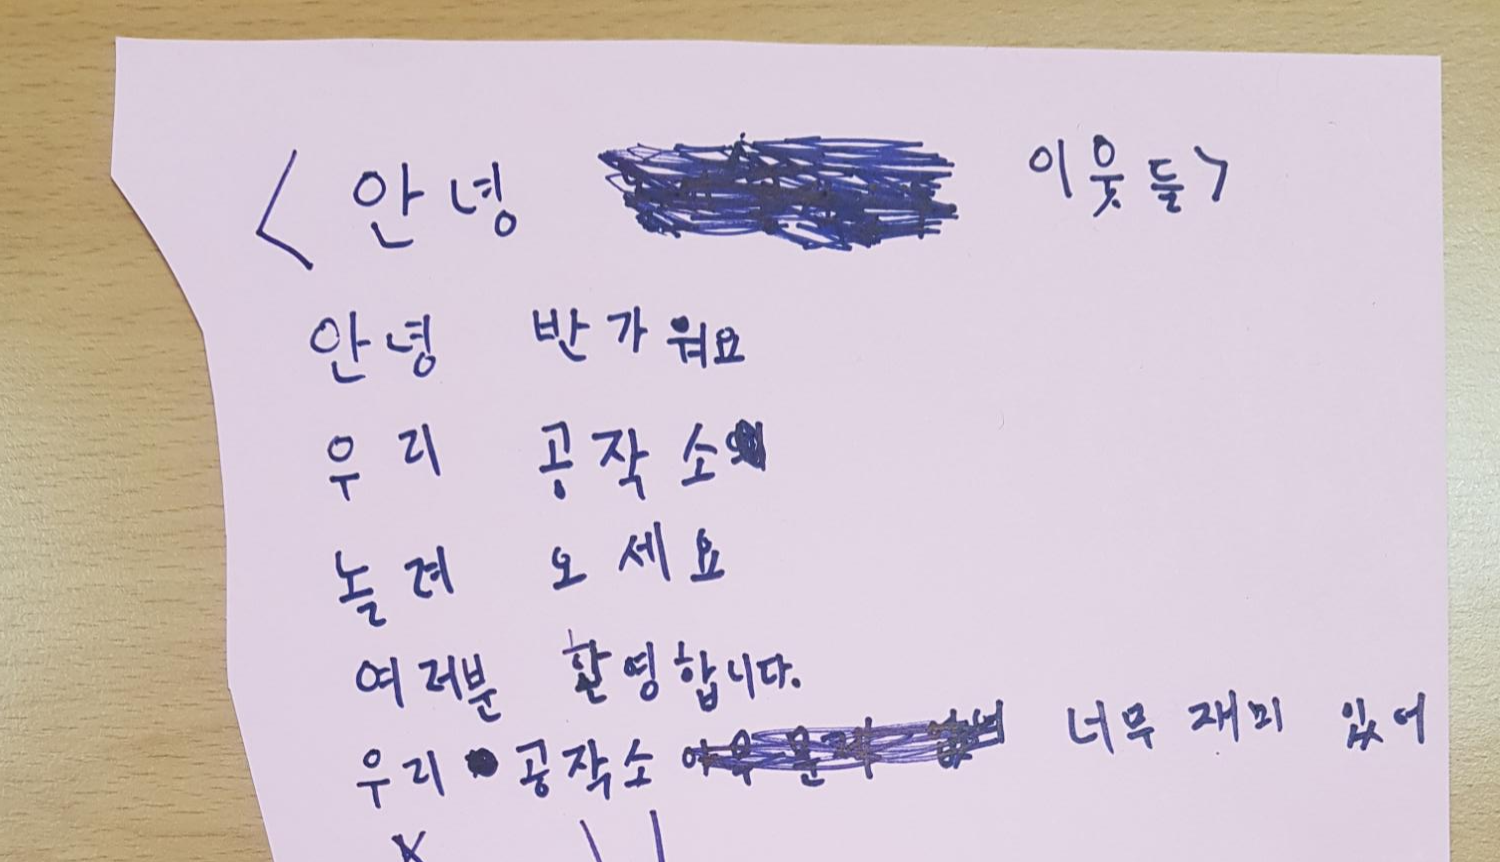 <안녕 이웃들>
안녕 반가워요
우리 공작소
놀려 오세요
여러분 환영합니다.
우리 공작소 너무 재미 있어